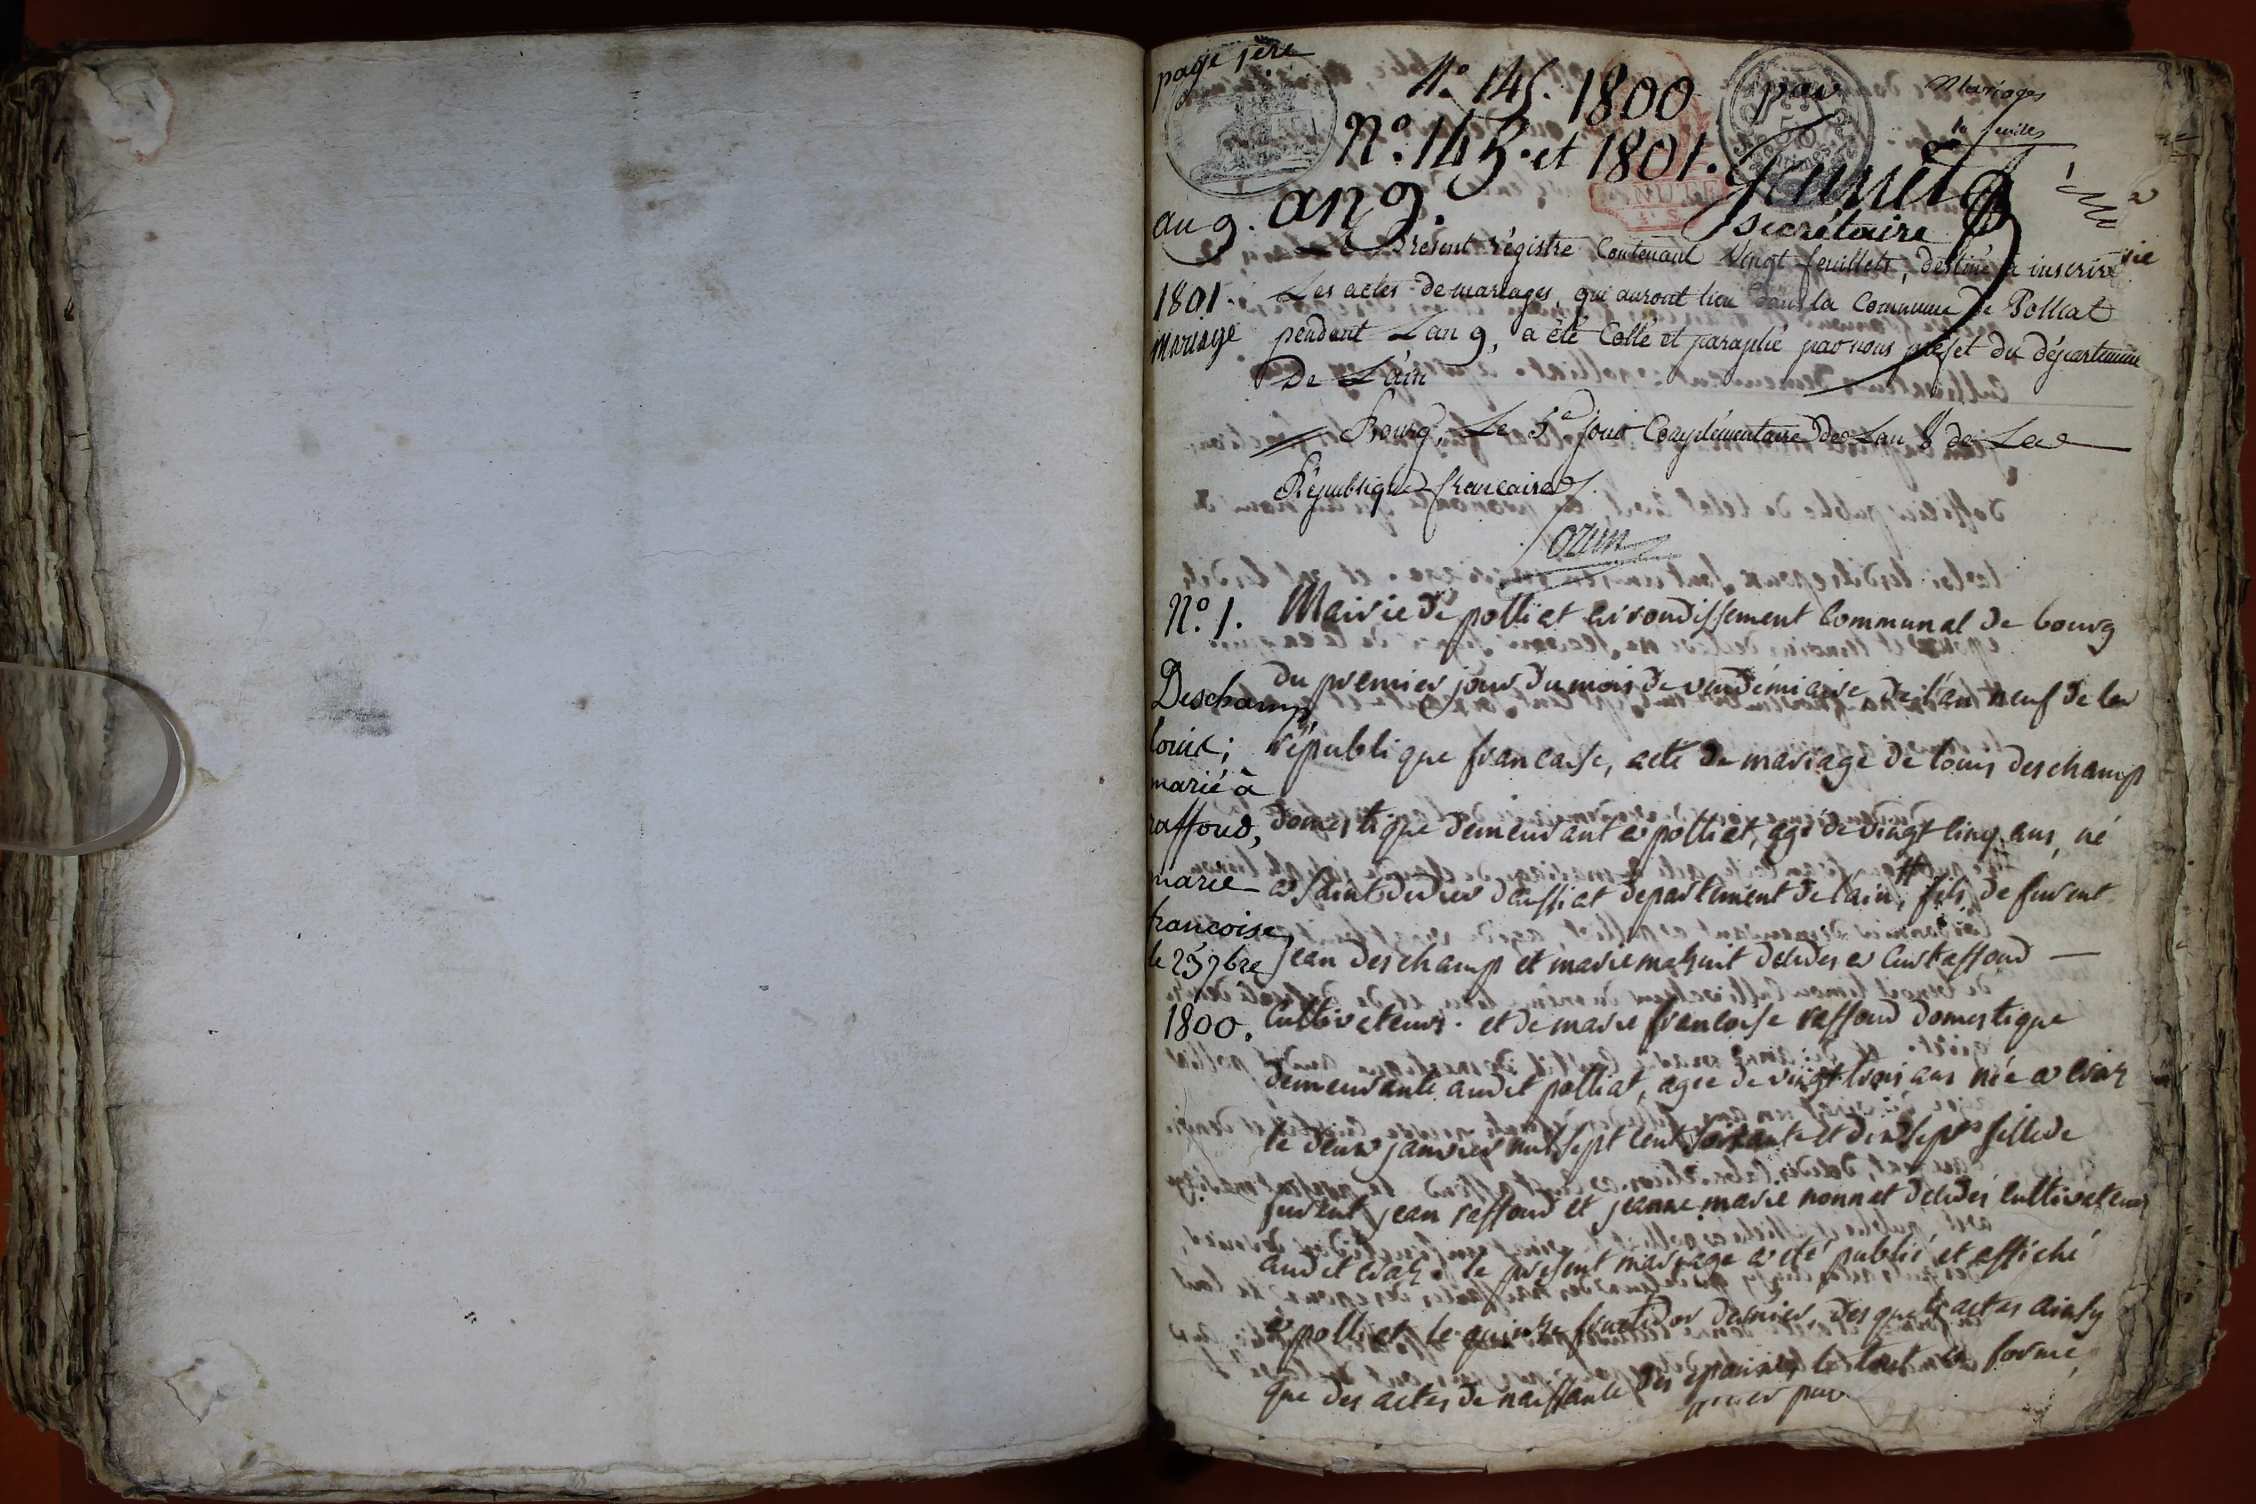 page 1ère
N.° 145. 1800 par Mariages
N.° 145. et 1801.
an 9. an 9.
secrétaire
Présent régistre Contenant Vingt feuillets, destiné à inscrire
1801. Les actes de mariages, qui auront lieu dans la Commune de Polliat
Mariage pendant L'an 9, a été Collé et paraphé par nous préfet du département
De L'ain
Bourg, Le 5e jour Complémentaire de Lan 8 de La
République française
Ozun
N.° 1. Mairie de polliat arrondissement Communal de bourg
Deschamp du premier jour du mois de vendémiaire de l'an neuf de la
louis; république francaise, acte de mariage de louis deschamp
marié à
raffoud, domestique demeurant a polliat, agé de vingt cinq ans, né
marie a saint didier daussiat departement de lain, fils de furent
francoise,
le 23 7bre jean deschamp et marie décédés a Curtaffoud
1800. Cultivateurs. et de marie francoise raffoud domestique
demeurante audit polliat, agée de vingt trois ans née a cras
le deux janvier mil sept cent soixante et dix sept fille de
furent jean raffoud et jeanne marie monnet décédés cultivateurs
audit cras. le présent mariage a été publié et affiché
a polliat le quinze fructidor dernier, des quels actes ainsy
que des actes de naissance des epoux, le tout en forme,